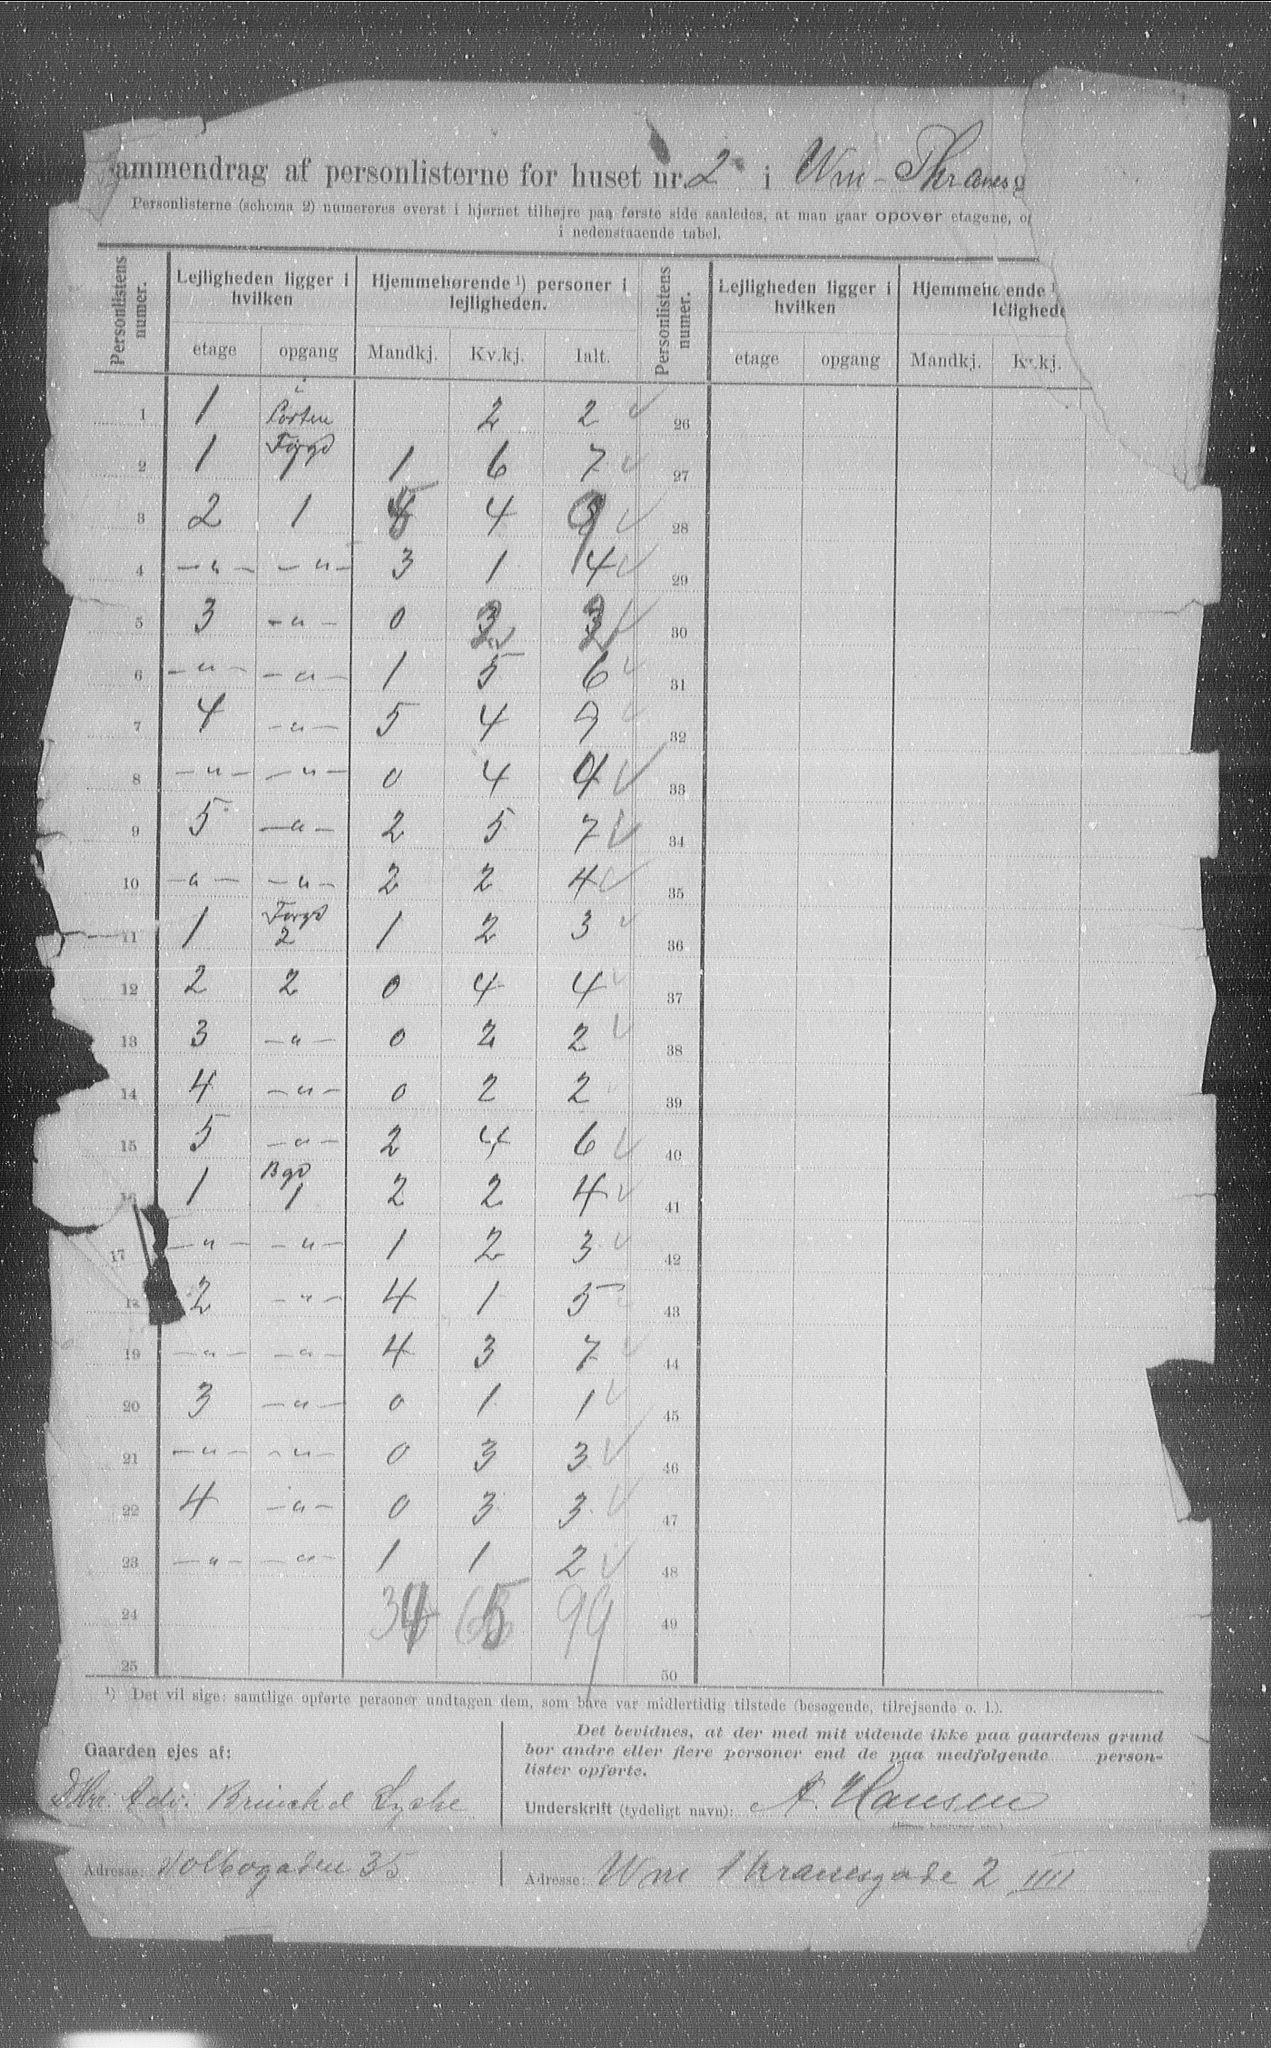 ammendrag af personlisterne for huset nr. 2 i Wm - Thranesg
Personlisterne (schema 2) numereres øverst i hjørnet tilhøjre paa første side saaledes, at man gaar opover etagene, og
i nedenstaaende tabel.
Personlistens numer. Lejligheden ligger i hvilken Hjemmehørende ¹) personer i lejligheden. Personlistens numer. Lejligheden ligger i hvilken Hjemmehørende ¹
etage opgang Mandkj. Kv.kj. Ialt. etage opgang Mandkj. Kv.kj.
1 1 i Porten 2 2 26
2 1 Forgd 1 1 6 7 27
3 2 1 5 4 9 28
4 - " - - " - 3 1 4 29
5 3 - " - 0 2 2 30
6 - " - - " - 1 5 6 31
7 4 - " - 5 4 9 32
8 - " - - " - 0 4 4 33
9 5 - " - 2 5 7 34
10 - " - - " - 2 2 4 35
11 1 Forgd 2 1 2 3 36
12 2 2 0 4 4 37
13 3 - " - 0 2 2 38
14 4 - " - 0 2 2 39
15 5 - " - 2 4 6 40
16 1 Bgd 1 2 2 4 41
17 - " - - " - 1 2 3 42
18 2 - " - 4 1 5 43
19 - " - - " - 4 3 7 44
20 3 - " - 0 1 1 45
21 - " - - " - 0 3 3 46
22 4 - " - 0 3 3 47
23 - " - - " - 1 1 2 48
24 34 65 99 49
25 50
¹) Det vil sige: samtlige opførte personer undtagen dem, som bare var midlertidig tilstede (besøgende, tilrejsende o. l.).
Gaarden ejes af:
Hr. Adv.
Adresse: 35
Det bevidnes, at der med mit vidende ikke paa gaardens grund
bor andre eller flere personer end de paa medfølgende person-
lister opførte.
Underskrift (tydeligt navn): A. Hansen
Adresse: Wm Thranesgade 2 IIII